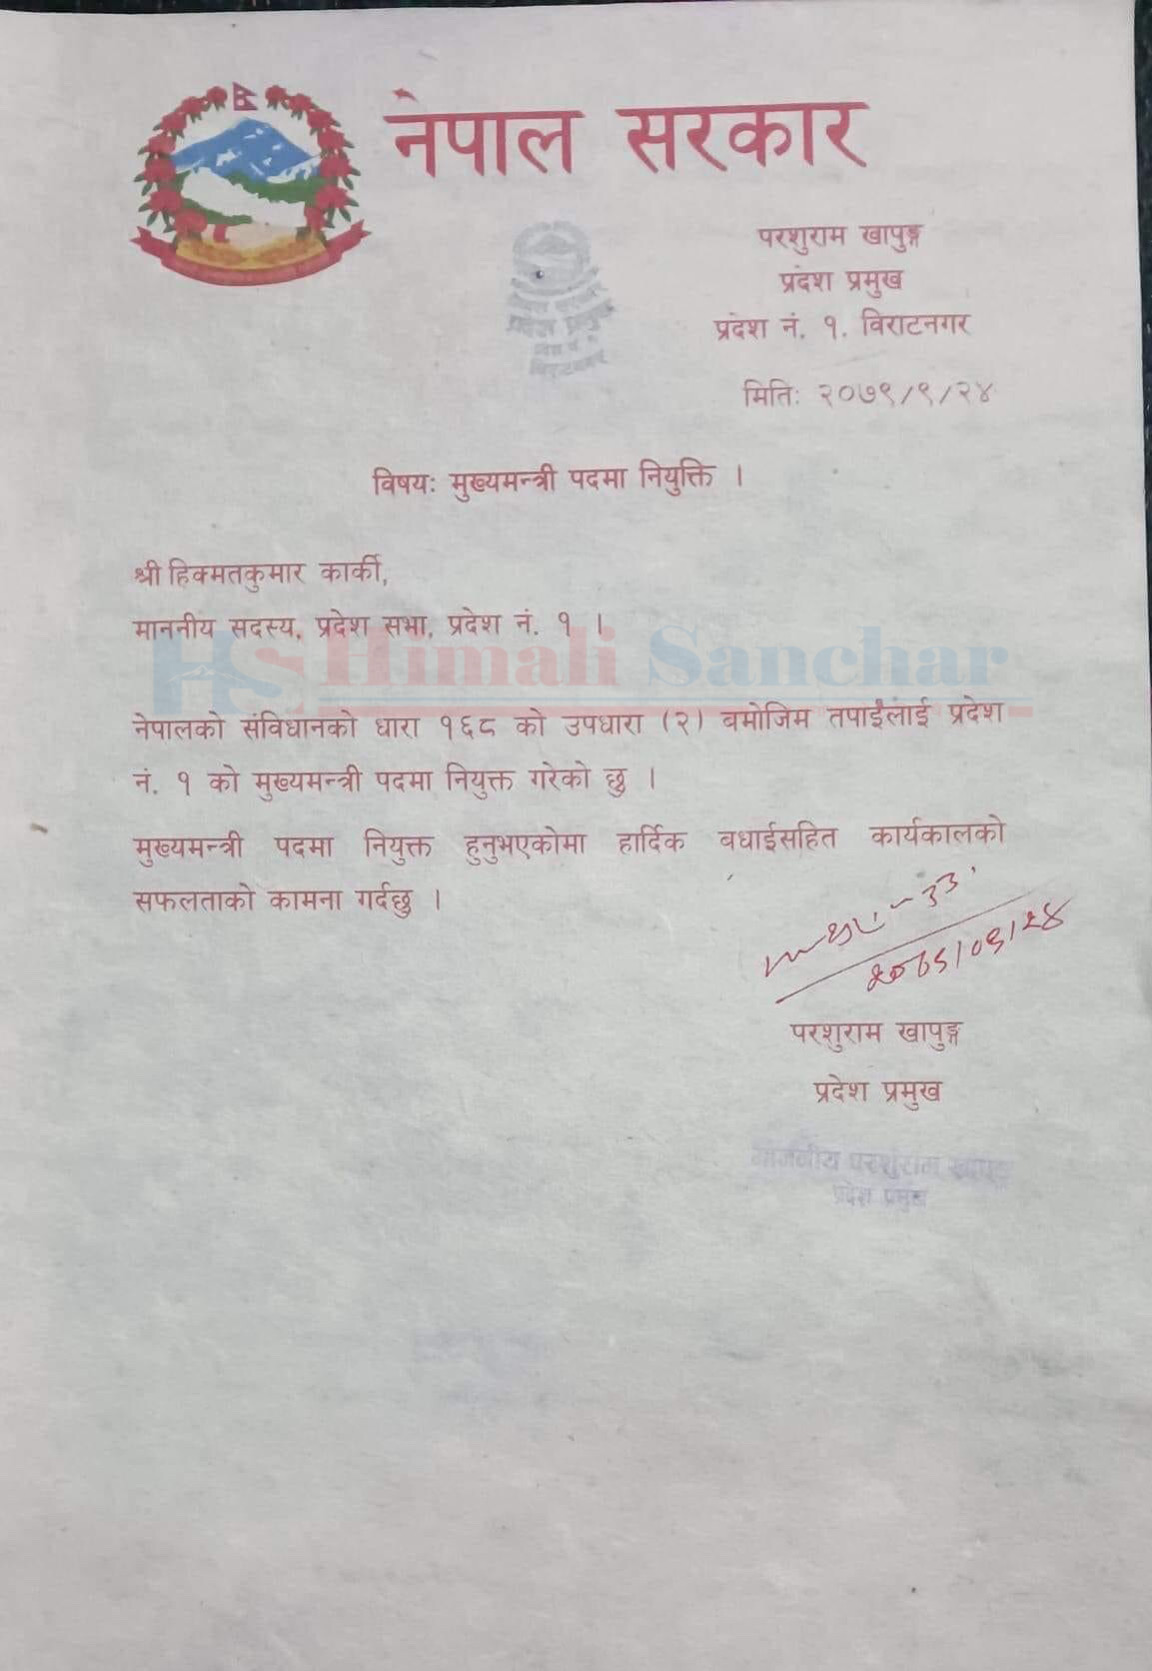 नेपाल सरकार
परशुराम खापुङ्ग
प्रदेश प्रमुख
प्रदेश नं. १. विराटनगर
मितिः २०७९/९/२४
विषयः मुख्यमन्त्री पदमा नियुक्ति ।
श्री हिक्मतकुमार कार्की,
माननीय सदस्य, प्रदेश सभा, प्रदेश नं. १ ।
HS Himali Sanchar
नेपालको संविधानको धारा १६८ को उपधारा (२) बमोजिम तपाईंलाई प्रदेश
नं. १ को मुख्यमन्त्री पदमा नियुक्त गरेको छु ।
मुख्यमन्त्री पदमा नियुक्त हुनुभएकोमा हार्दिक बधाईसहित कार्यकालको
सफलताको कामना गर्दछु ।
२०७९/०९/२४
परशुराम खापुङ्ग
प्रदेश प्रमुख
माननीय परशुराम खापुङ्ग
प्रदेश प्रमुख